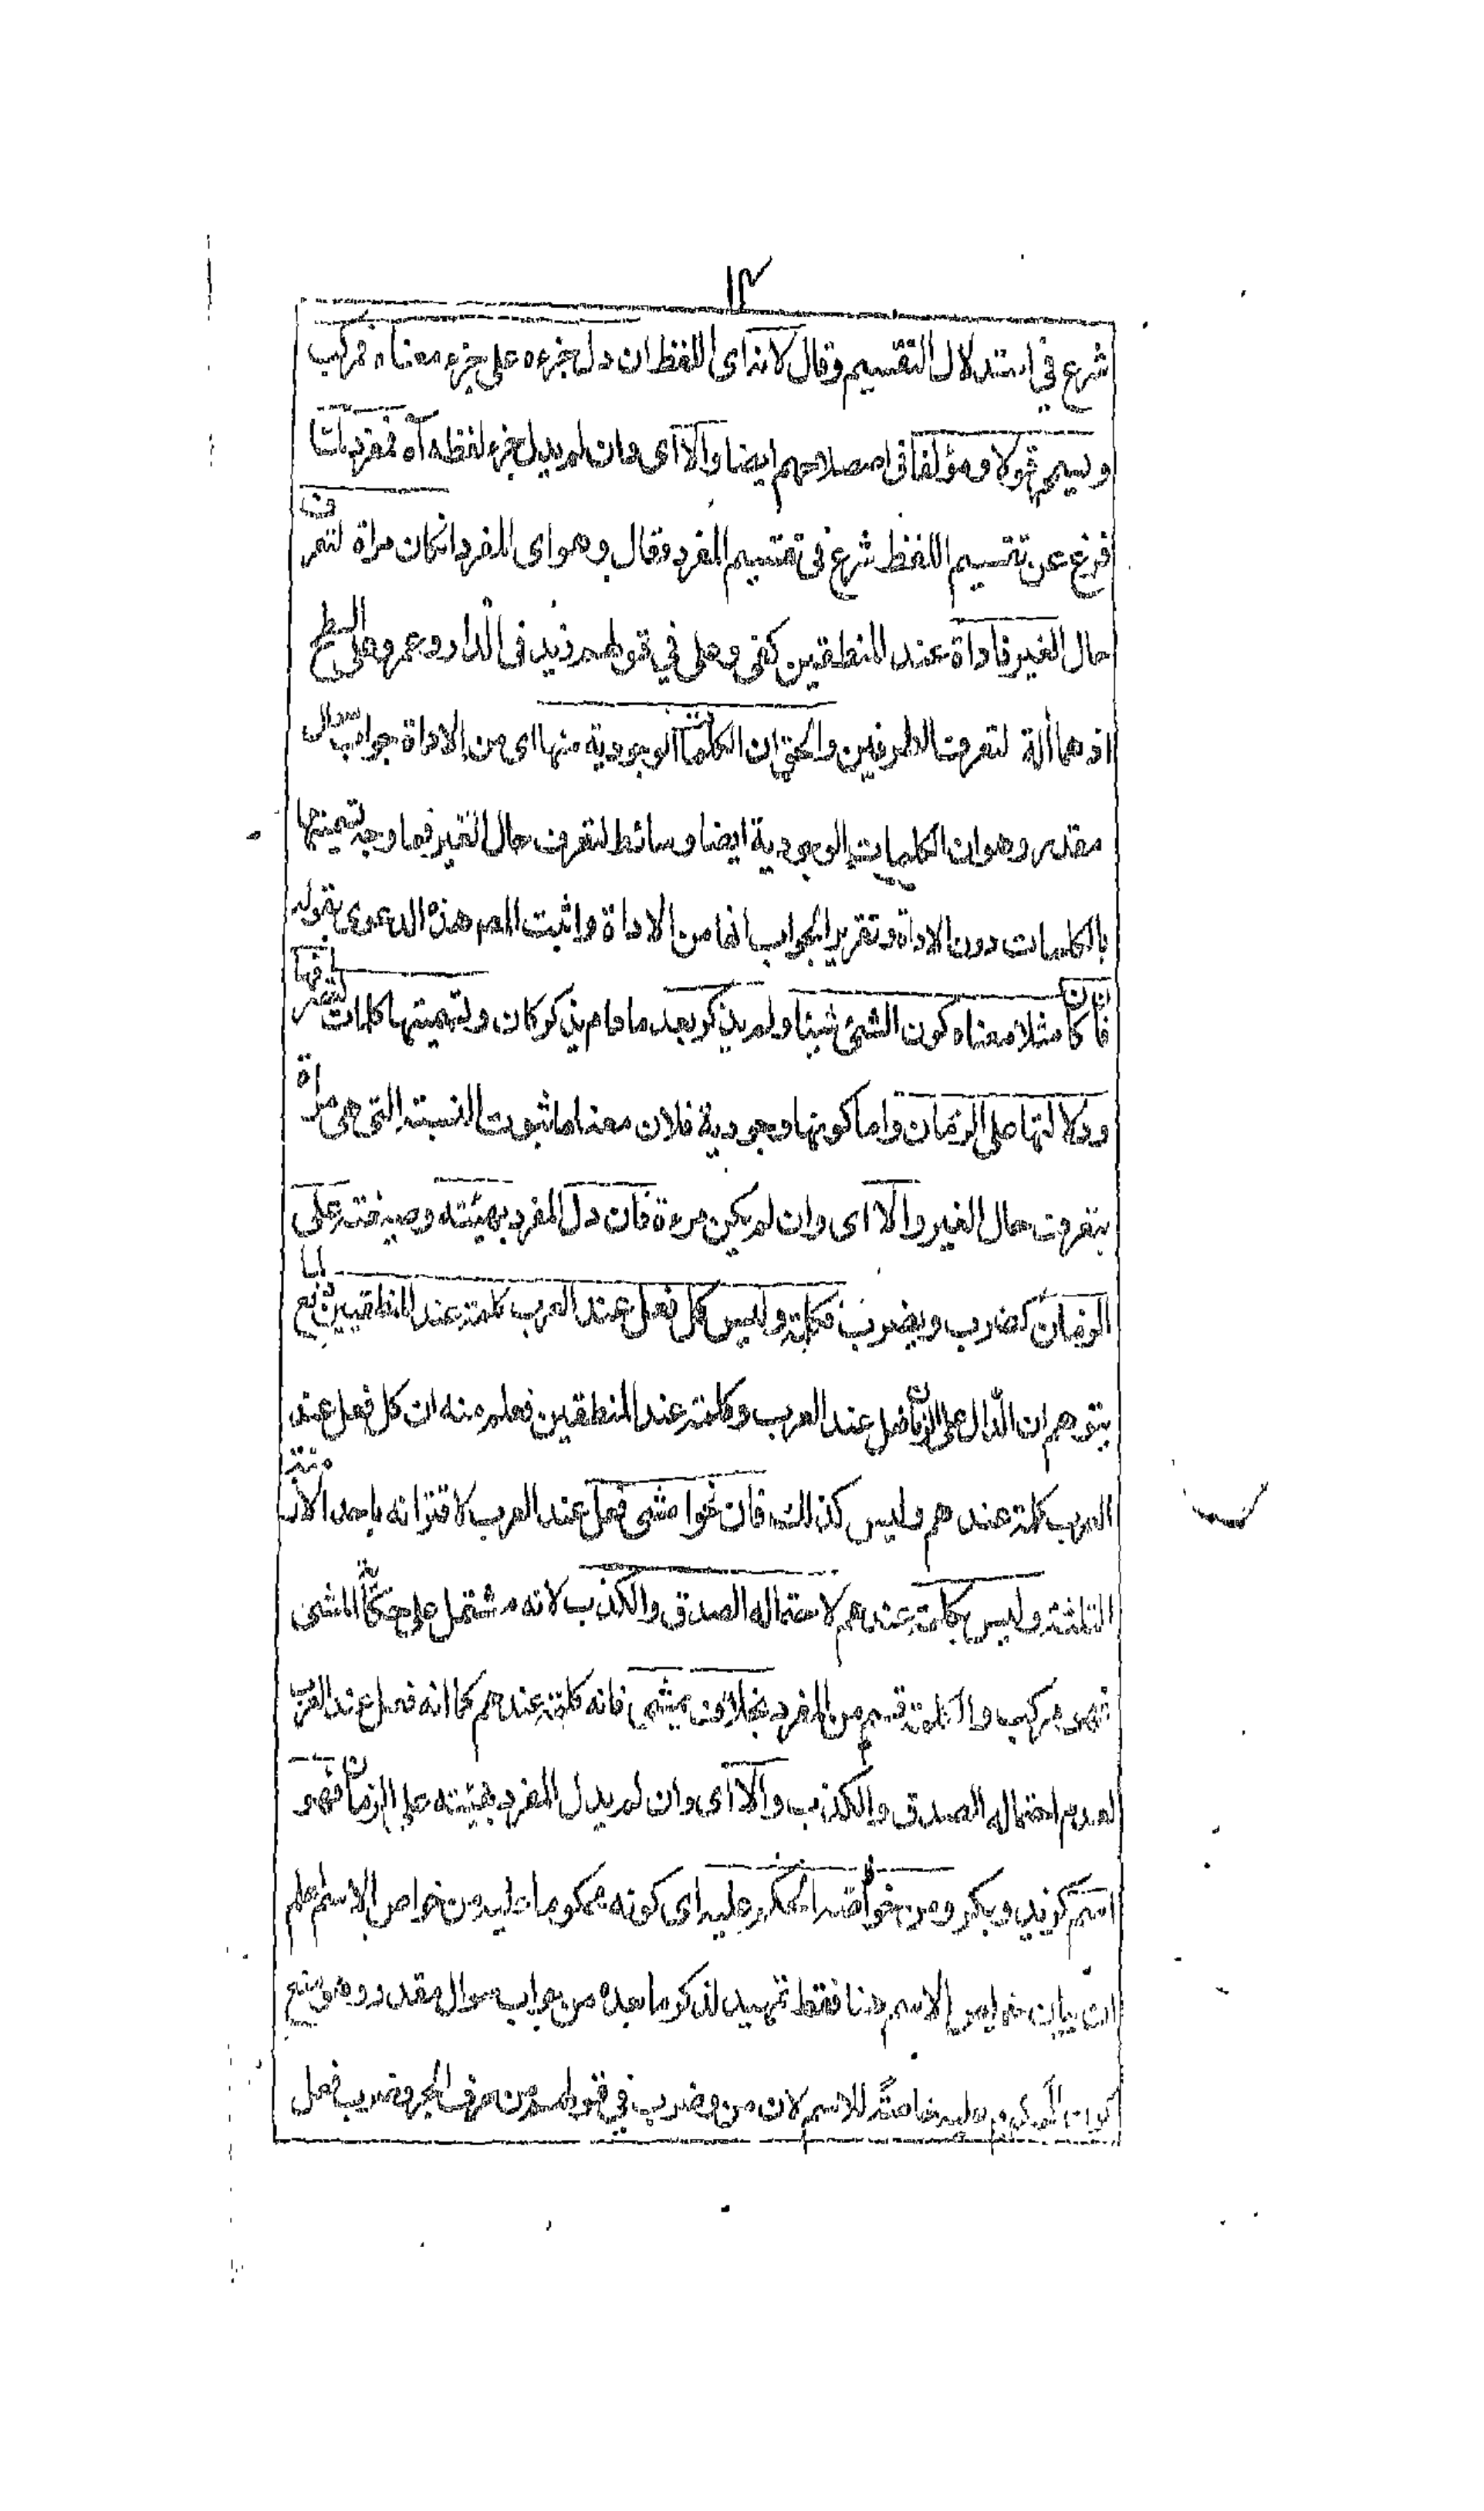 ١٢
شرع فى استدلال التقسيم وقال لانه اى اللفظ ان دل جزءه على جزء معناه فمركب
ويسمى قولا ومؤلفا فى اصطلاحهم ايضا والا اى وان لم يدل جزء لفظه آه فمفرد لما
فرغ عن تقسيم اللفظ شرع فى تقسيم المفرد وقال وهو اى المفرد انكان مراة لتعرف
حال الغير فاداة عند المنطقين كفى وعلى في قولهم زيد فى الدار وعمرو على السطح
اذ هما ألة لتعرف الطرفين والحق ان الكلمات الوجودية منها اى من الاداة جواب سوال
مقدر وهو ان الكلمات الوجودية ايضا وسائط لتعرف حال الغير فما وجه تسميتها
بالكلمات دون الاداة وتقرير الجواب انها من الاداة واثبت المصر هذه الدعوى بقوله
فان كان مثلا معناه كون الشئ شيئا ولم يذكر بعد مادام يذكر كان وتسميتها كلمات لتصرفها
ودلالتها على الزمان واما كونها وجودية فلان معناها ثبوت النسبة التى هى مراة
بتعرف حال الغير والا اى وان لم يكن مرءة فان دل المفرد بهيئته وصيغته على
الزمان كضرب ويضرب فكلمة وليس كل فعل عند العرب كلمة عند المنطقيين دفع لما
يتوهم ان الدال على الزمان فعل عند العرب وكلمة عند المنطقين فعلم منه ان كل فعل عند
العرب كلمة عندهم وليس كذلك فان نحوا مشى فعل عند العرب لاقترانه باحد الازمنة
الثلثة وليس بكلمة عندهم لاحتماله الصدق والكذب لانه مشتمل على حكاية المشى
فهو مركب والكلمة قسم من المفرد بخلاف يمشى فانه كلمة عندهم كما انه فعل عند العرب
لعدم احتماله الصدق والكذب والا اى وان لم يدل المفرد بهيئته على الزمان فهو
اسم كزيد وبكر ومن خواصه الحكم عليه اى كونه محكوما عليه من خواص الاسم اعلم
ان بيان خواص الاسم هنا فقط تمهيد لذكر ما بعده من جواب سوال مقدر وهو منع
كون المحكوم عليه خاصة للاسم لان من وضرب في قولهم من حرف الجر وضرب فعل